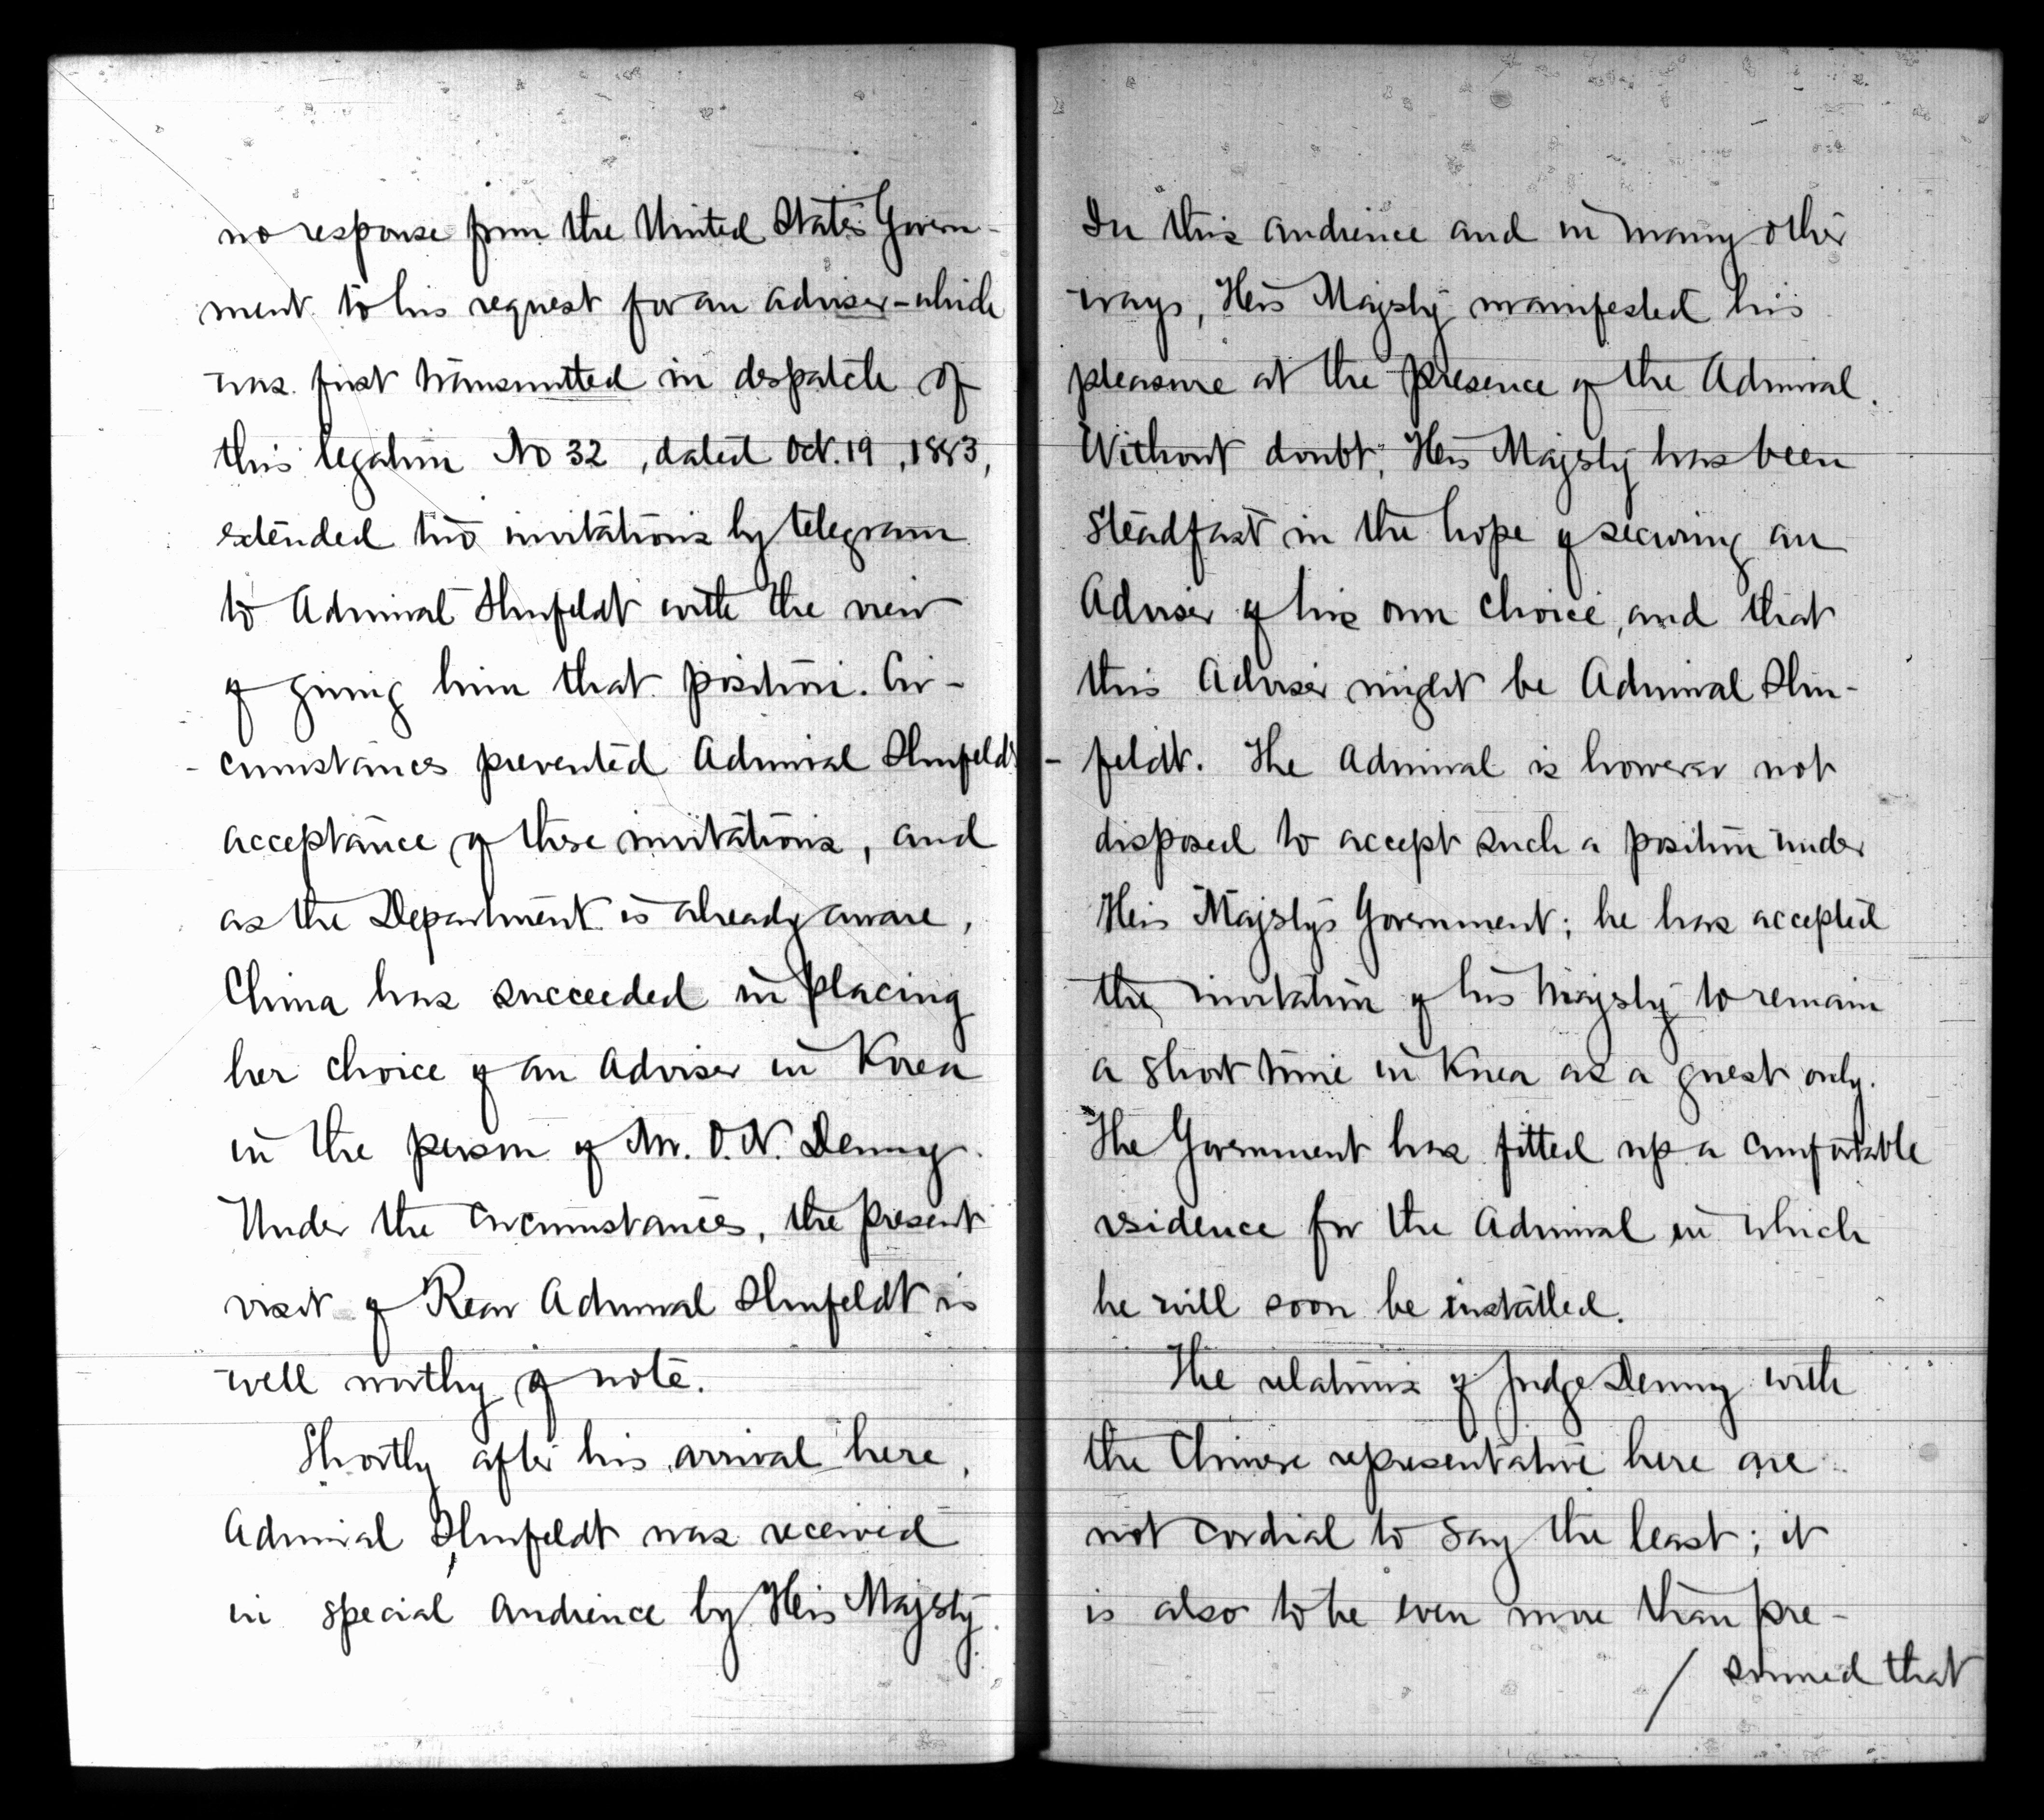 no response from the United States Govern-
ment to his request for an adviser - which
was first transmitted in despatch of
this legation No 32, dated Oct. 19, 1883,
extended two invitations by telegram
to Admiral Shufeldt with the view
of giving him that position. Cir-
-cumstances prevented Admiral Shufeldt
acceptance of these invitations, and
as the Department is already aware,
China has succeeded in placing
her choice of an Adviser in Korea
in the person of Mr. O. N. Denny.
Under the circumstances, the present
visit of Rear Admiral Shufeldt is
well worthy of note.
Shortly after his arrival here,
Admiral Shufeldt was received
in special audience by His Majesty.
In this audience and in many other
ways, His Majesty manifested his
pleasure at the presence of the Admiral.
Without doubt, His Majesty has been
steadfast in the hope of securing an
Adviser of his own choice, and that
this Adviser might be Admiral Shu-
-feldt. The Admiral is however not
disposed to accept such a position under
His Majesty's Government; he has accepted
the invitation of his Majesty to remain
a short time in Korea as a guest only.
The Government has fitted up a comfortable
residence for the Admiral in which
he will soon be installed.
The relations of Judge Denny with
the Chinese representative here are
not cordial to say the least; it
is also to be even more than pre-
/ sumed that